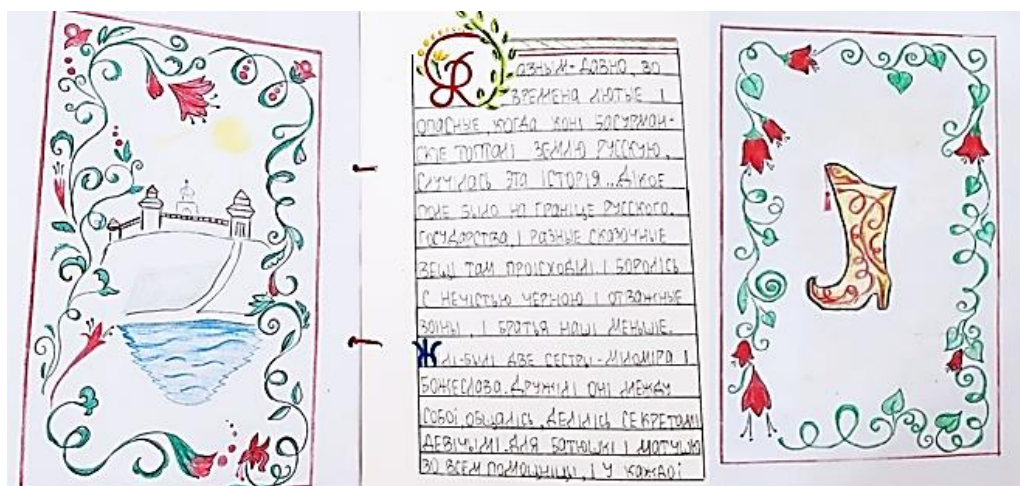 RАЗНЫМ-ДАВНО, ВО
ВРЕМЕНА ЛЮТЫЕ I
ОПАСНЫЕ, КОГДА КОНI БАСУРМАН-
СКIЕ ТОПТАЛI ЗЕМЛЮ РУССКУЮ,
СЛУЧIЛАСЬ ЭТА IСТОРIЯ. ДIКОЕ
ПОЛЕ БЫЛО НА ГРАНIЦЕ РУССКОГО
ГОСУДАРСТВА, I РАЗНЫЕ СКАЗОЧНЫЕ
ВЕЩI ТАМ ПРОIСХОДIЛI. I БОРОЛIСЬ
С НЕЧIСТЬЮ ЧЕРНОЮ I ОТВАЖНЫЕ
ВОIНЫ, I БРАТЬЯ НАШI МЕНЬШIЕ.
ЖIЛI-БЫЛI ДВЕ СЕСТРЫ - МIЛОМIРА I
БОЖЕСЛАВА. ДРУЖIЛI ОНI МЕЖДУ
СОБОI, ОБЩАЛIСЬ, ДЕЛIЛIСЬ СЕКРЕТАМI
ДЕВIЧЬIМI. ДЛЯ БАТЮШКI I МАТУШКI
ВО ВСЕМ ПОМОЩНIЦЫ, I У КАЖДОI